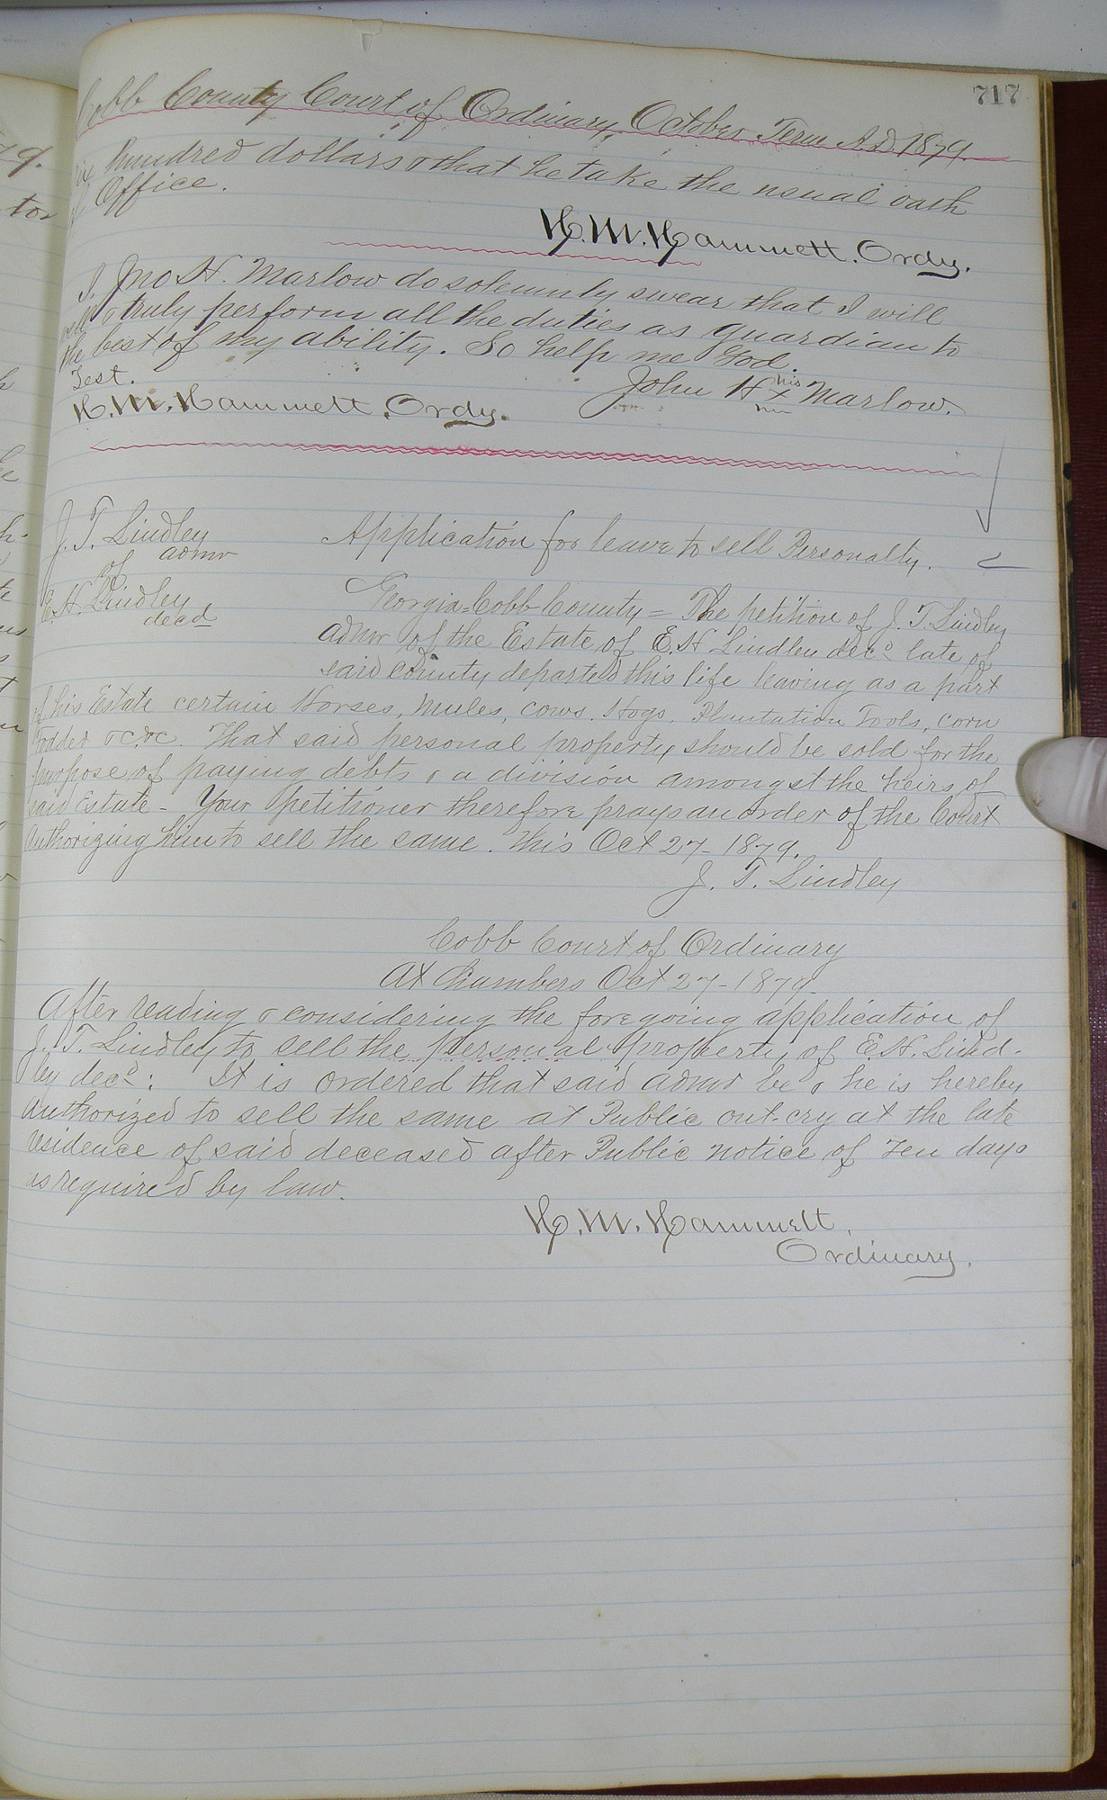 717
Cobb County Court of Ordinary, October Term A.D. 1879.
hundred dollars & that he take the usual oath
of Office.
H. M. Hammett. Ordy.
I, Jno H. Marlow do solemnly swear that I will
well & truly perform all the duties as guardian to
the best of my ability. So help me God.
Test.
John H his x Marlow.
H. M. Hammett. Ordy.
J. T. Lindley
admr
of
E. H. Lindley
decd
Application for leave to sell Personalty.
Georgia = Cobb County = The petition of J. T. Lindley
admr of the Estate of E. H Lindley decd. late of
said county departed this life leaving as a part
of his Estate certain Horses, Mules, cows, Hogs, Plantation Tools, corn
Fodder &c &c. That said personal property should be sold for the
purpose of paying debts & a division amongst the heirs of
said Estate - Your petitioner therefore prays an order of the Court
Authorizing him to sell the same. This Oct 27 1879.
J. T. Lindley
Cobb Court of Ordinary
At Chambers Oct 27 - 1879.
After reading & considering the foregoing application of
J. T. Lindley to sell the personal property of E. H. Lind-
ley decd: It is ordered that said admr be & he is hereby
authorized to sell the same at Public out-cry at the late
residence of said deceased after Public notice of Ten days
as required by law.
H. M. Hammett,
Ordinary.